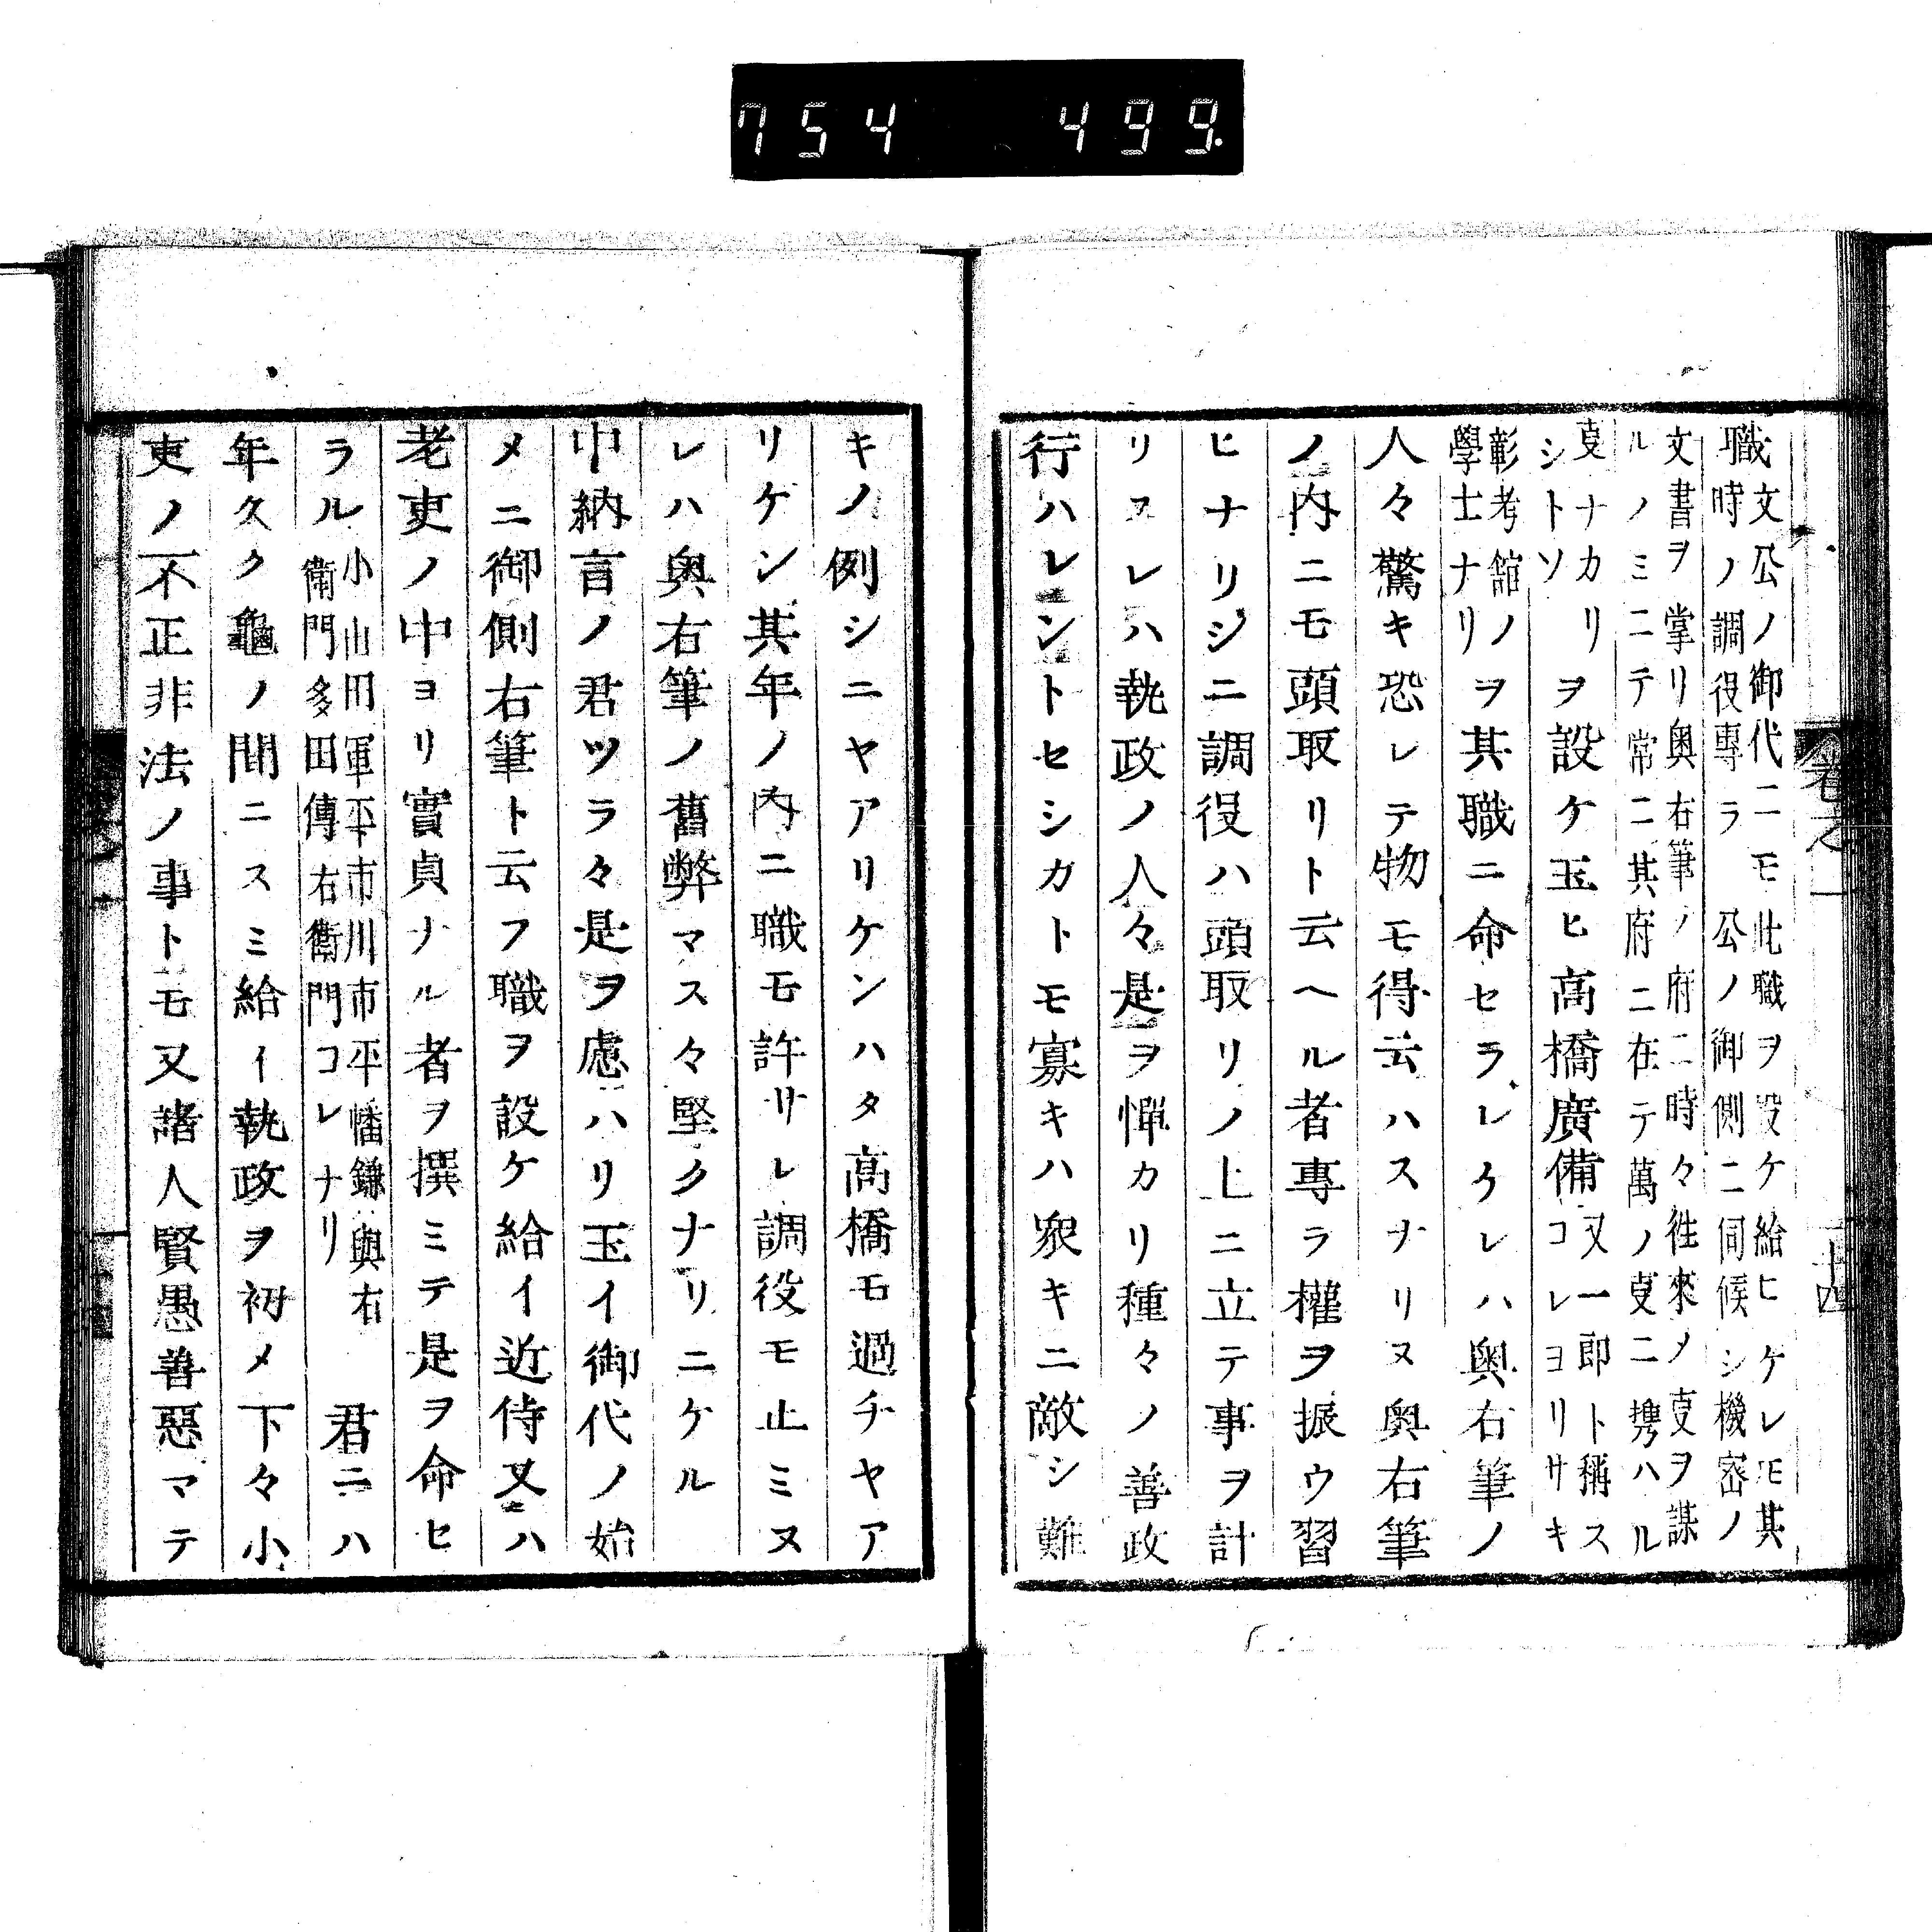 754 499.
卷之一 十四
文公ノ御代ニモ此職ヲ設ケ給ヒケレモ其
職時ノ調役專ラ 公ノ御側ニ伺候シ機密ノ
文書ヲ掌リ奥右筆ノ府ニ時々往來ノ叓ヲ謀
ルノミニテ常ニ其府ニ在テ萬ノ叓ニ携ハル
叓ナカリ
シトソヲ設ケ玉ヒ高橋廣備又一郎ト稱ス
コレヨリサキ
彰考館ノ
學士ナリヲ其職ニ命セラレケレハ奥右筆ノ
人々驚キ恐レテ物モ得云ハスナリヌ奥右筆
ノ内ニモ頭取リト云ヘル者專ラ權ヲ振ウ習
ヒナリシニ調役ハ頭取リノ上ニ立テ事ヲ計
リヌレハ執政ノ人々是ヲ憚カリ種々ノ善政
行ハレントセシカトモ寡キハ衆キニ敵シ難
キノ例シニヤアリケンハタ高橋モ過チヤア
リケン其年ノ内ニ職モ許サレ調役モ止ミヌ
レハ奥右筆ノ舊弊マス々堅クナリニケル
中納言ノ君ツラ々是ヲ慮ハリ玉イ御代ノ始
メニ御側右筆ト云フ職ヲ設ケ給イ近侍又ハ
老吏ノ中ヨリ實貞ナル者ヲ撰ミテ是ヲ命セ
ラル小山田軍平市川市平幡鎌與右
衛門多田傳右衛門コレナリ 君ニハ
年久ク龜ノ間ニスミ給イ執政ヲ初メ下々小
吏ノ不正非法ノ事トモ又諸人賢愚善惡マテ